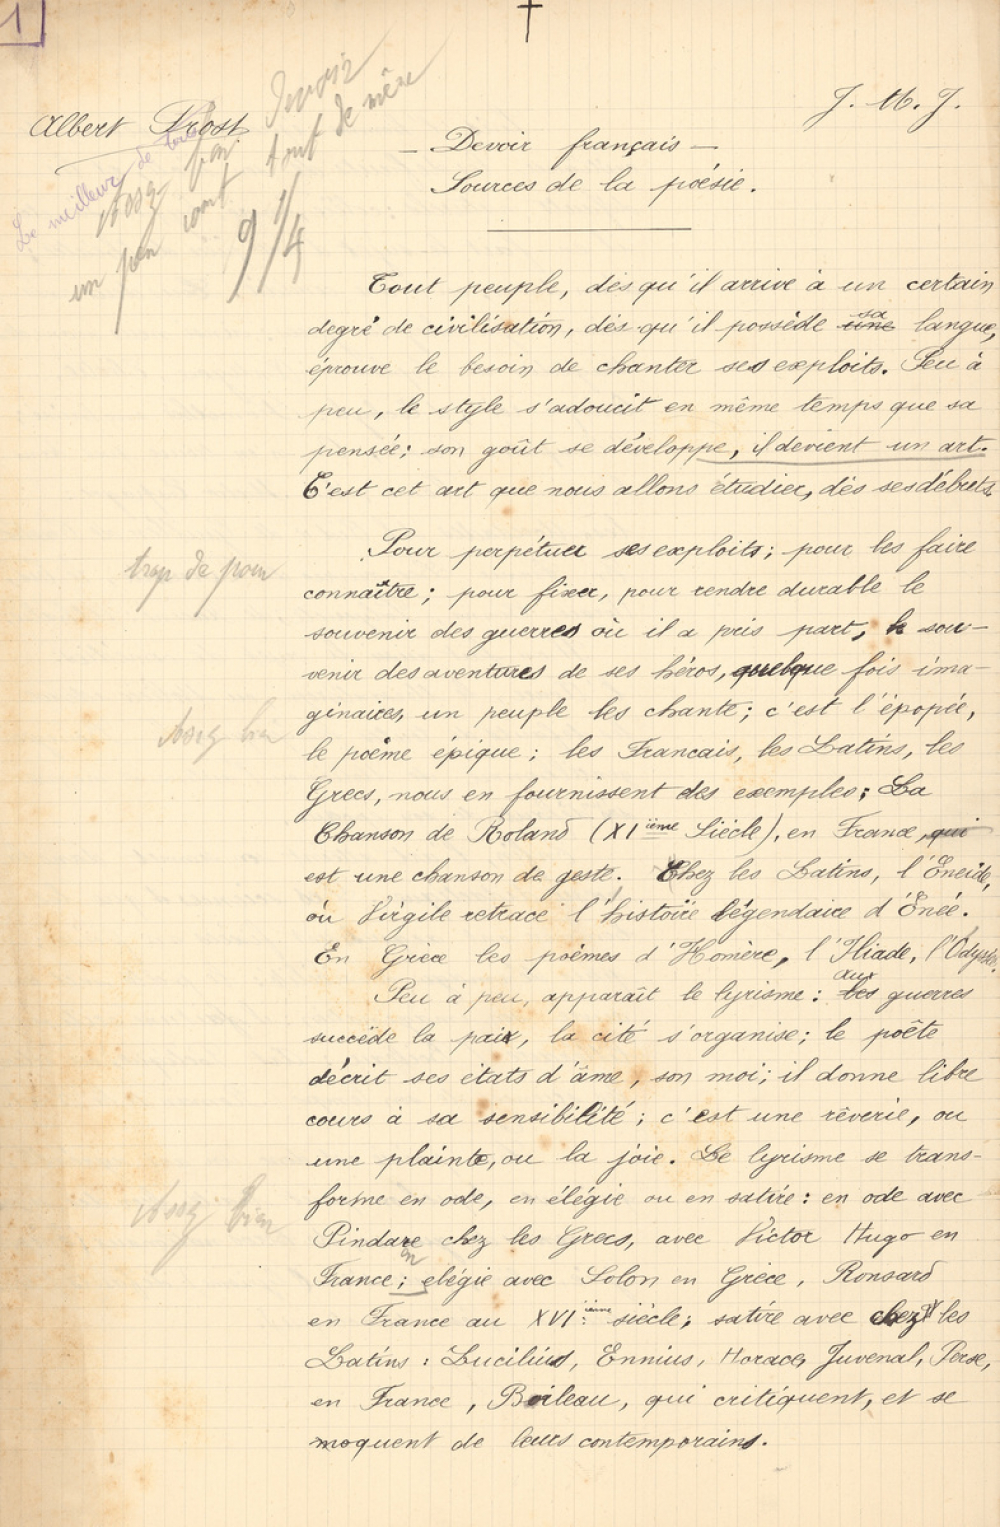 1
J. M. J.
Albert Prost
Devoir
assez bien
un peu court tout de même
Le meilleur de tous
9 1/4
— Devoir français —
Sources de la poésie.
Tout peuple, dès qu'il arrive à un certain
degré de civilisation, dès qu'il possède une sa langue,
éprouve le besoin de chanter ses exploits. Peu à
peu, le style s'adoucit en même temps que sa
pensée; son goût se développe, il devient un art.
C'est cet art que nous allons étudier, dès ses débuts.
Pour perpétuer ses exploits; pour les faire
trop de pour
connaître; pour fixer, pour rendre durable le
souvenir des guerres où il a pris part, le sou-
venir des aventures de ses héros, quelque fois ima-
ginaires, un peuple les chante; c'est l'épopée,
Assez bien
le poème épique; les Francais, les Latins, les
Grecs, nous en fournissent des exemples; La
Chanson de Roland (XIième Siècle), en France, qui
est une chanson de geste. Chez les Latins, l'Enéide,
où Virgile retrace l'histoire légendaire d'Énée.
En Grèce les poèmes d'Homère, l'Iliade, l'Odyssée.
Peu à peu, apparaît le lyrisme: les aux guerres
succède la paix, la cité s'organise; le poète
décrit ses états d'âme, son moi; il donne libre
cours à sa sensibilité; c'est une rêverie, ou
une plainte, ou la joie. Le lyrisme se trans-
forme en ode, en élégie ou en satire: en ode avec
Assez bien
Pindare chez les Grecs, avec Victor Hugo en
France; en elégie avec Solon en Grèce, Ronsard
en France au XVIième siècle; satire avec chez les
Latins: Lucilius, Ennius, Horace, Juvenal, Perse,
en France, Boileau, qui critiquent, et se
moquent de leurs contemporains.